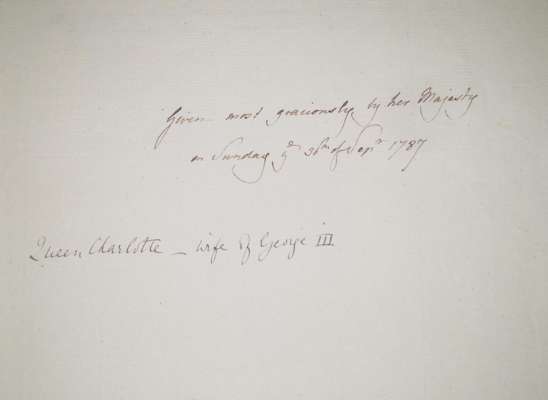 Given most graciously by her Majesty
on Sunday yᵉ 30ᵗʰ of Sepʳ 1787
Queen Charlotte – wife of George III